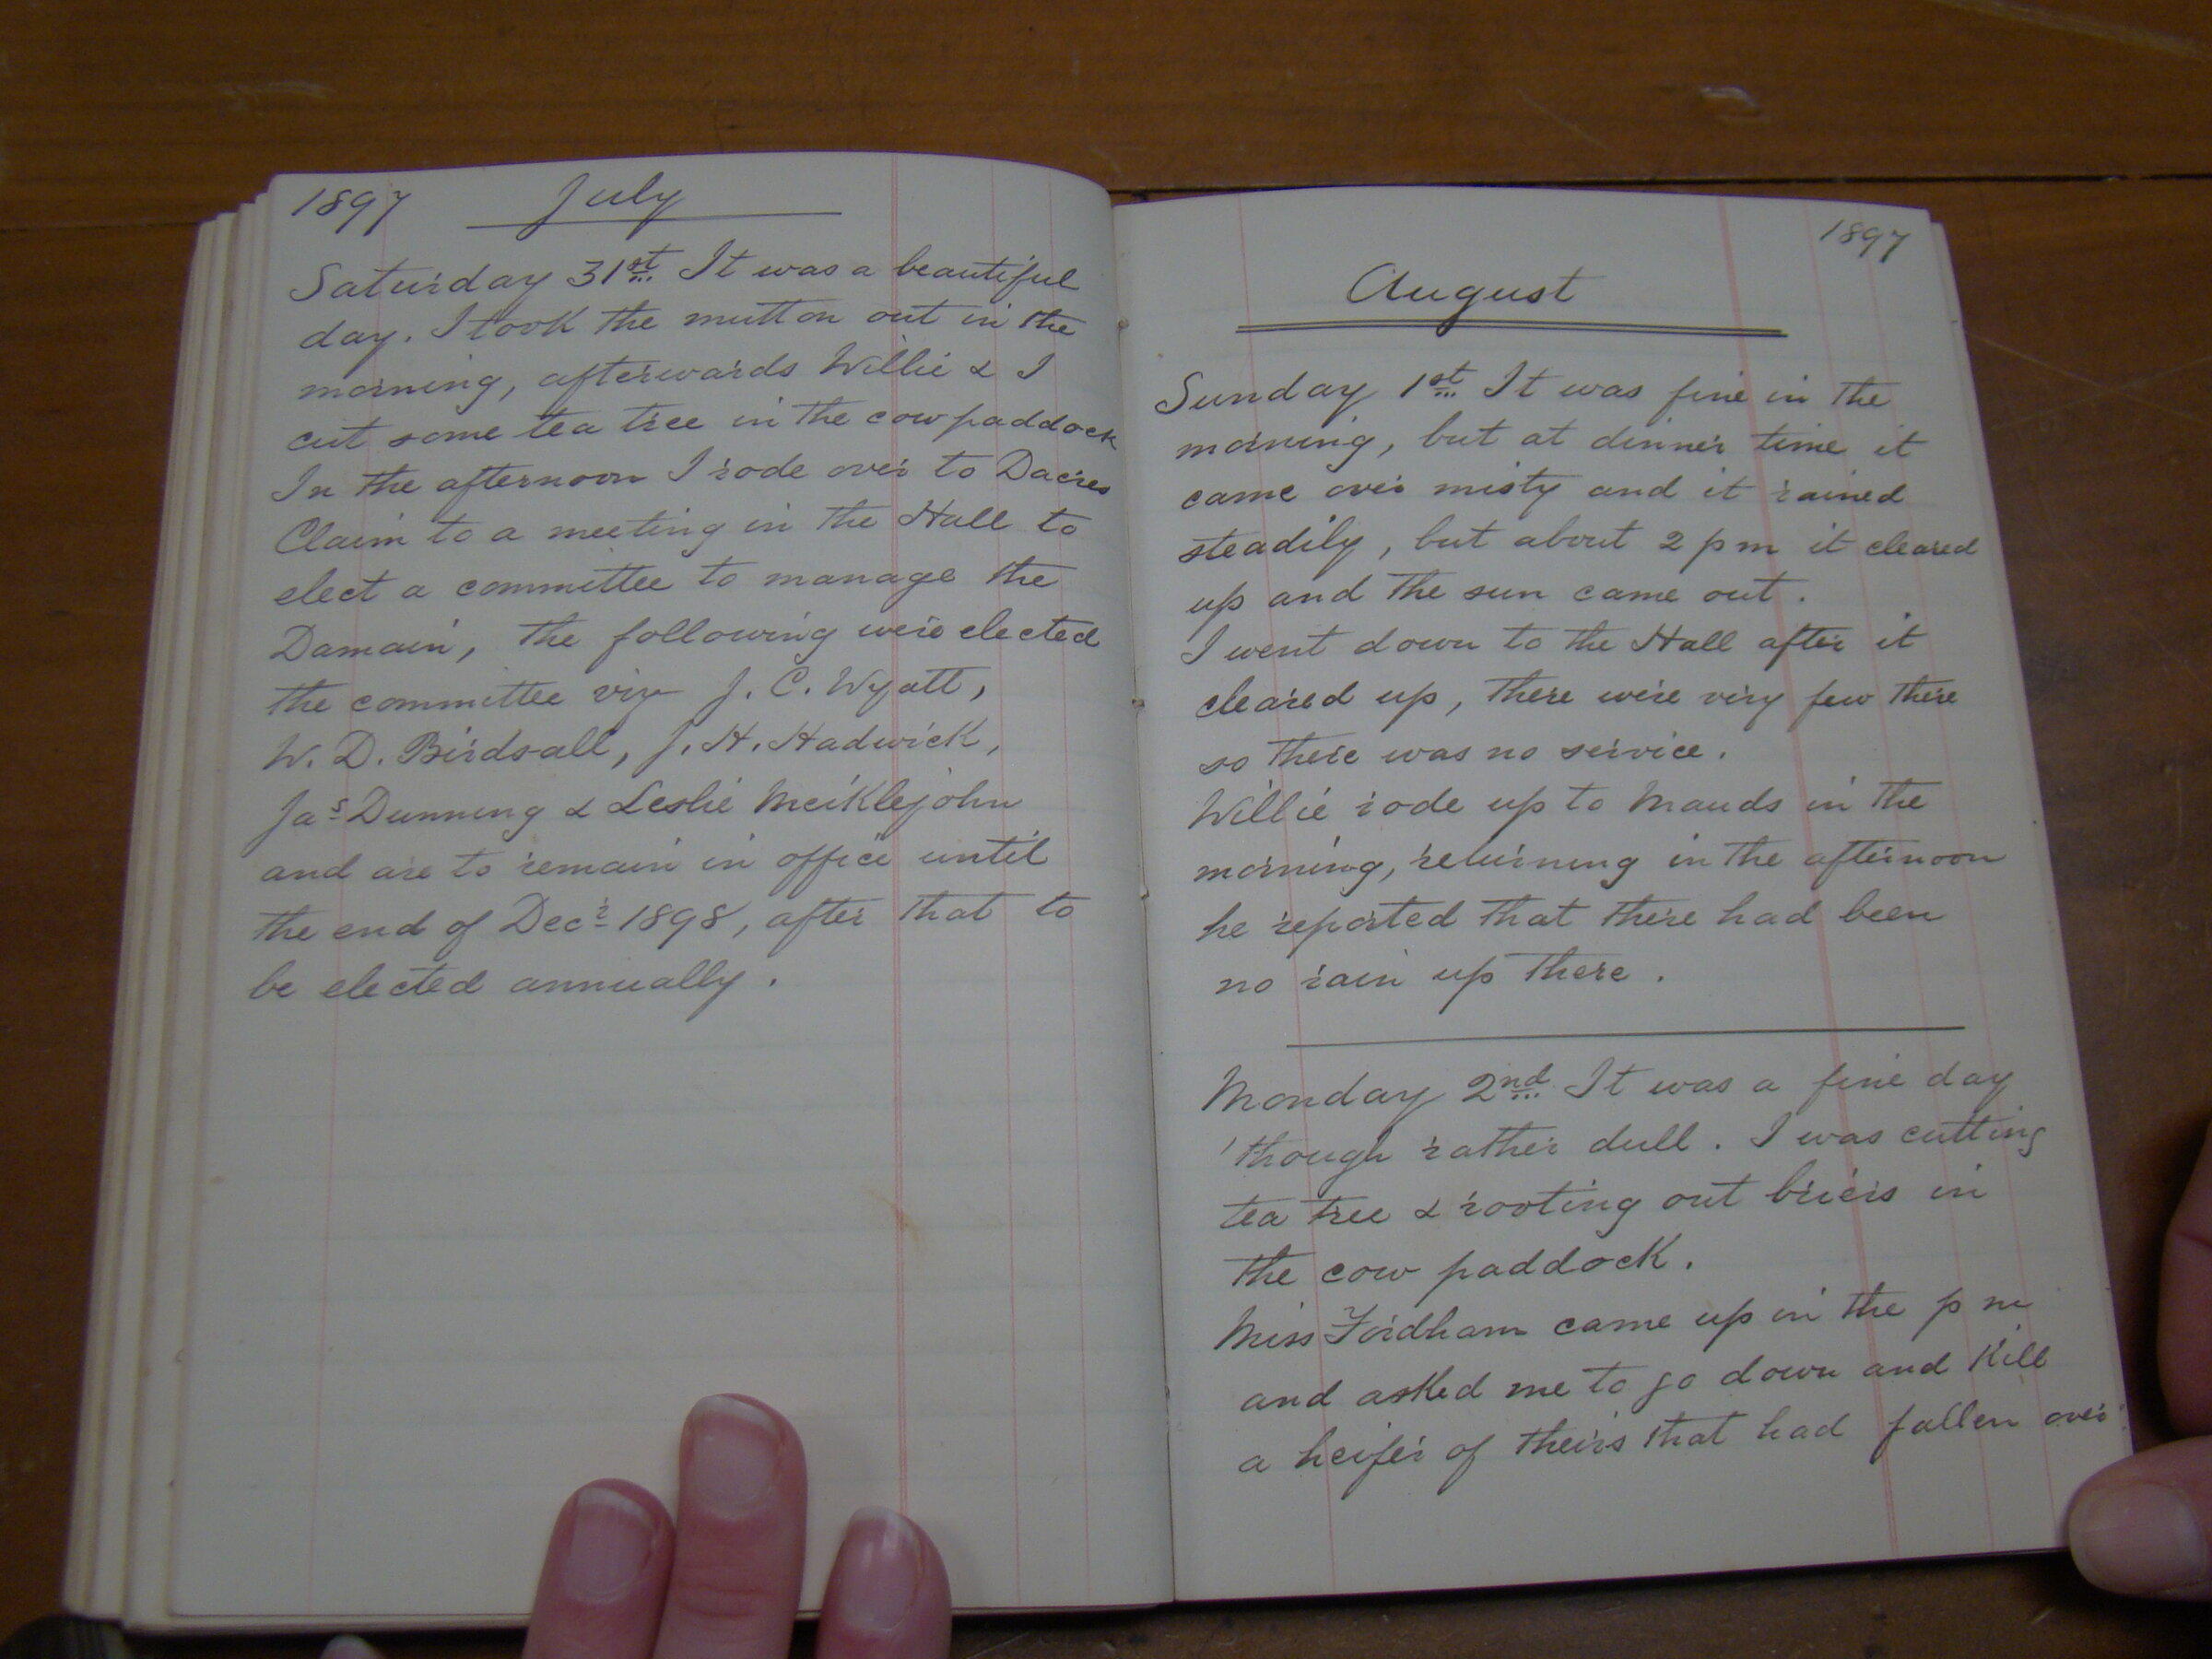 1897 July
Saturday 31st It was a beautiful
day. I took the mutton out in the
morning, afterwards Willie & I
cut some tea tree in the cow paddock
In the afternoon I rode over to Dacres
Claim to a meeting in the Hall to
elect a committee to manage the
Damain, the following were elected
the committee viz J. C. Wyatt,
W. D. Birdsall, J. H. Hadwick,
Jas Dunning & Leslie Meiklejohn
and are to remain in office until
the end of Decr 1898, after that to
be elected annually.
1897
August
Sunday 1st It was fine in the
morning, but at dinner time it
came over misty and it rained
steadily, but about 2 pm it cleared
up and the sun came out.
I went down to the Hall after it
cleared up, there were very few there
so there was no service.
Willie rode up to Mauds in the
morning, returning in the afternoon
he reported that there had been
no rain up there.
Monday 2nd It was a fine day
'though rather dull. I was cutting
tea tree & rooting out briers in
the cow paddock.
Miss Fordham came up in the pm
and asked me to go down and kill
a heifer of theirs that had fallen over